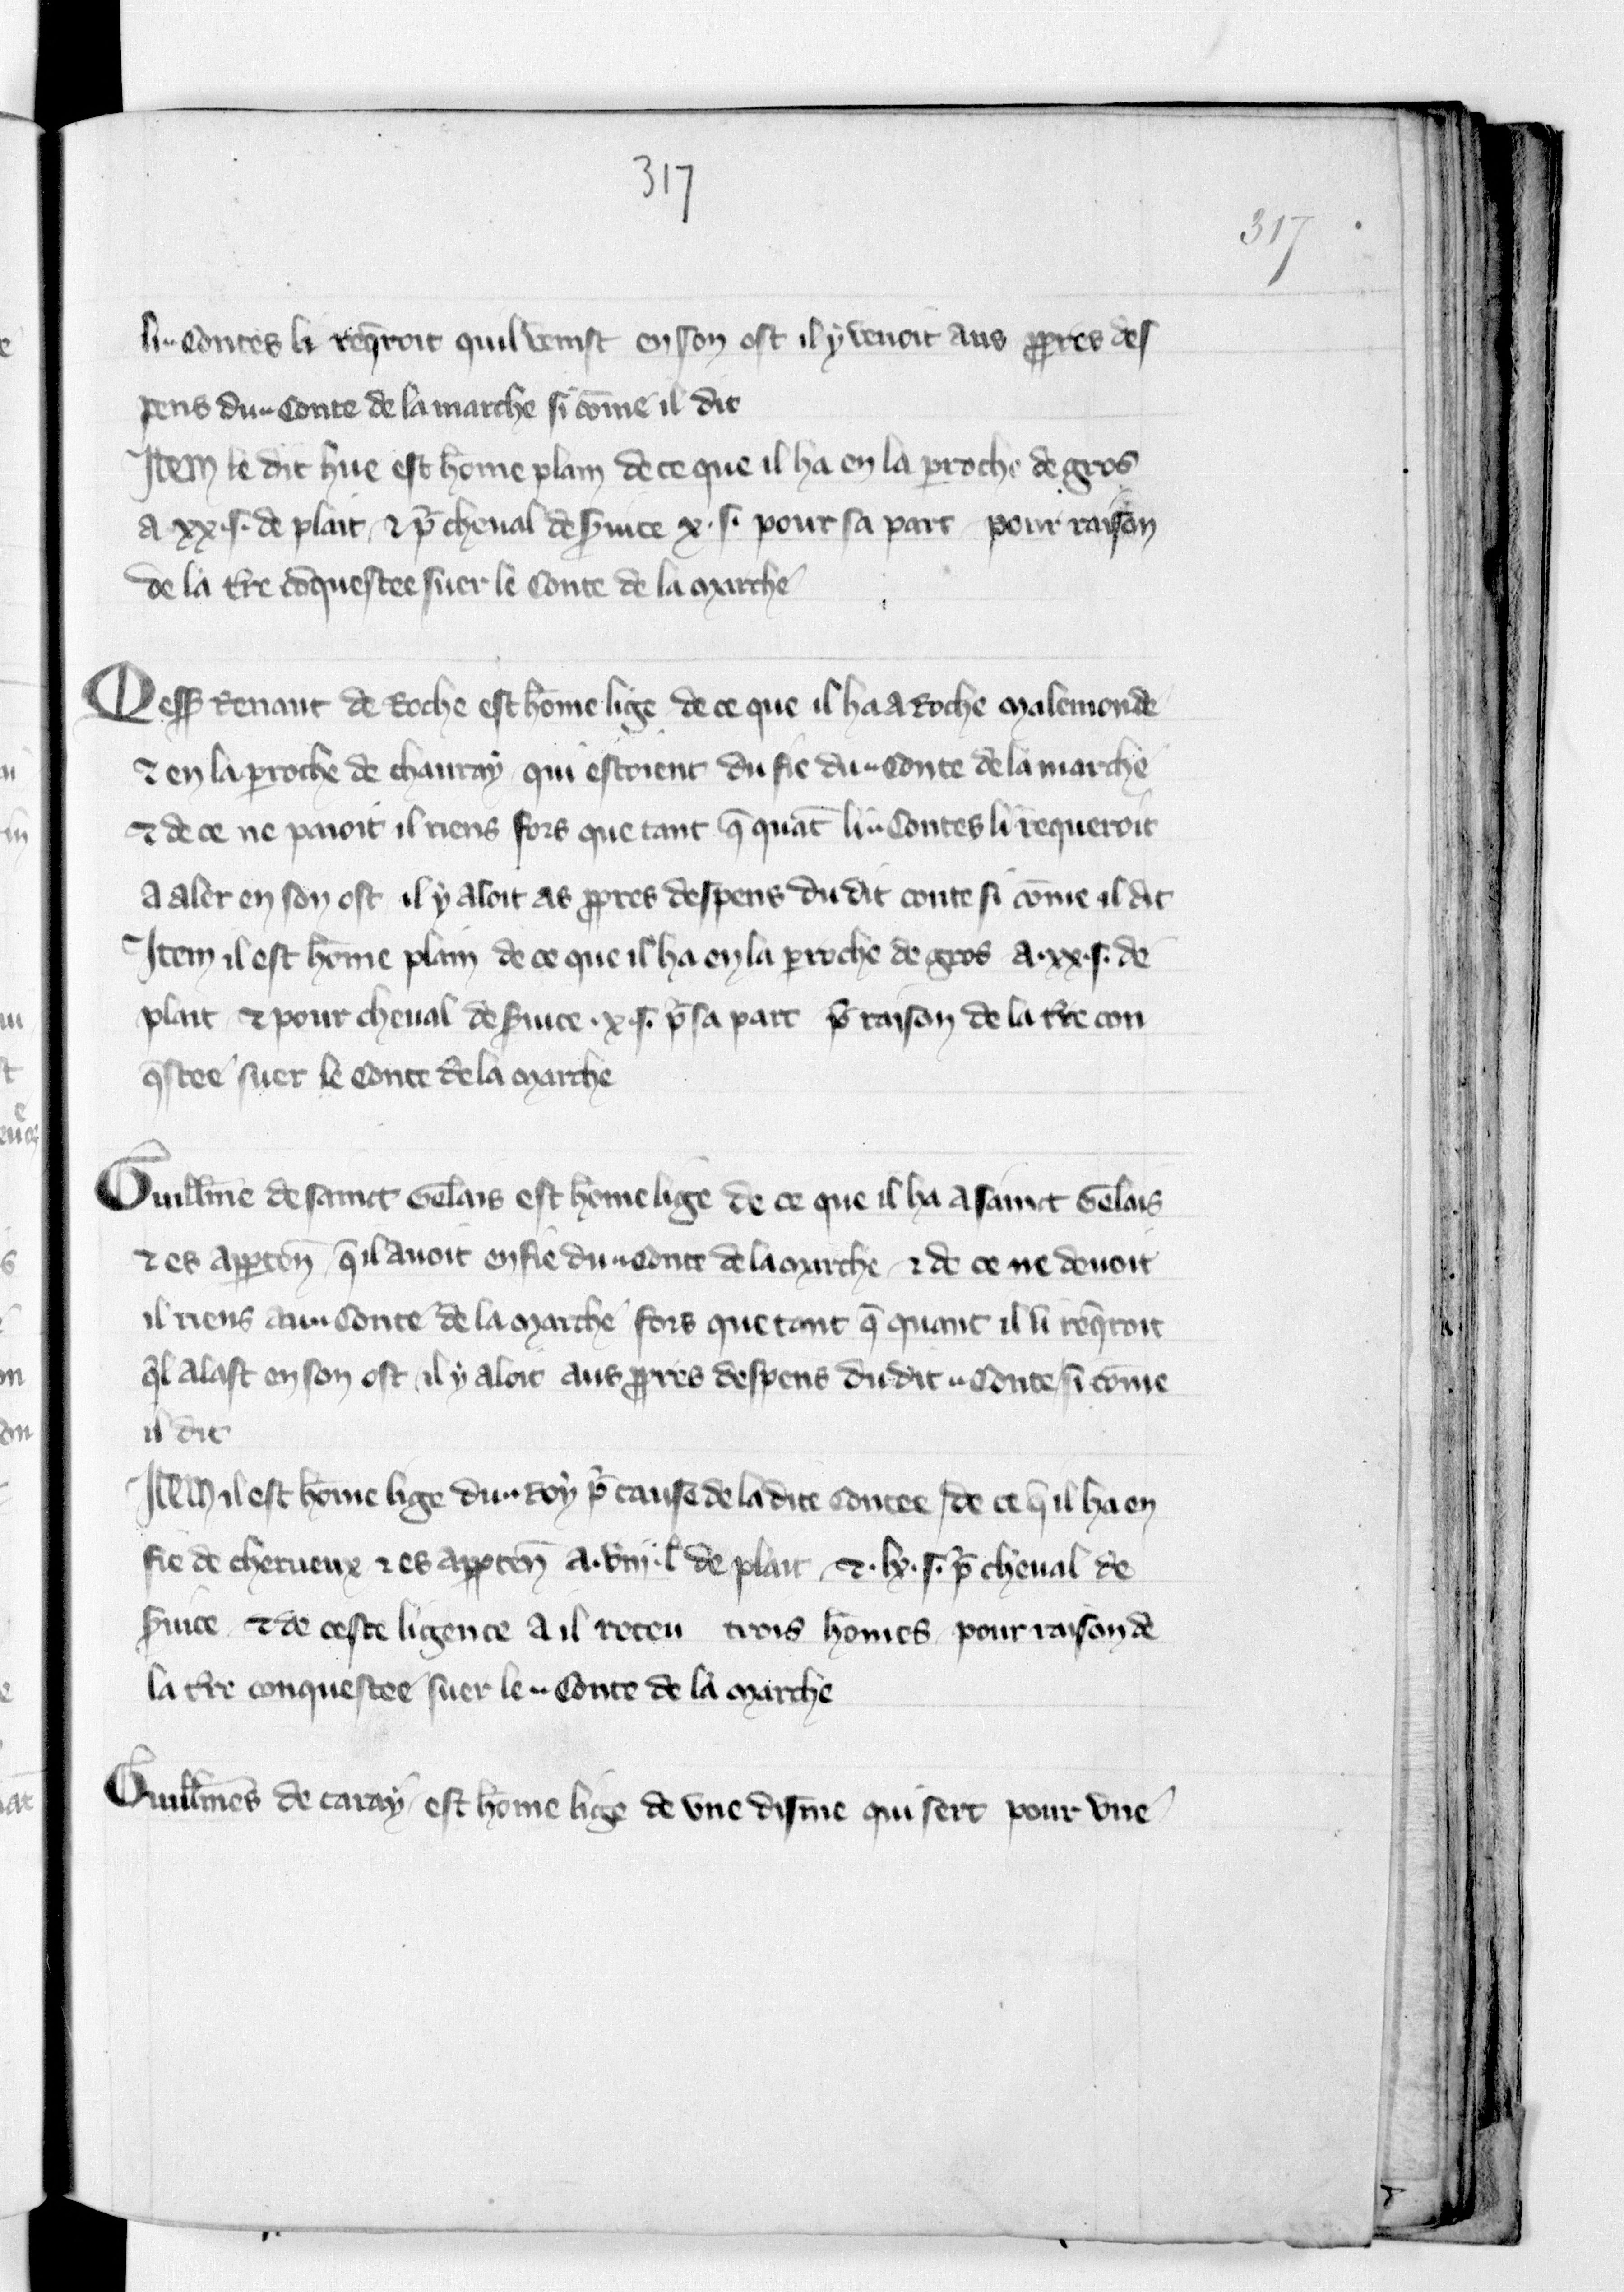 317
317
li ·· Contes li req̄roit quil venist en son ost il y venoit aus ꝓpres des
pens du ·· Conte de la marche si cōme il dit
Item le dit hue est hōme plain de ce que il ha en la ꝑroche de gros
a .xx. s. de plait ⁊ pᷣ cheual de ẜuice .x. s. pour sa part pour raison
de la tr̄e cōquestee suer le Conte de la marche
Messᷣ Renaut de Roche est hōme lige de ce que il ha a Roche malemonde
⁊ en la ꝑroche de chauray qui estoient du fie du ·· Conte de la marche
⁊ de ce ne paioit il riens fors que tant q̄ quāt li ·· Contes li requeroit
a aler en son ost il y aloit as ꝓpres despens du dit conte si cōme il dit
Item il est hōme plain de ce que il ha en la ꝑroche de gros a .xx. s. de
plait ⁊ pour cheual de ẜuice .x. s. pᷣ sa part pᷣ raison de la tr̄e con
q̄stee suer le Conte de la marche
Guillm̄e de sainct Gelais est hōme lige de ce que il ha a sainct Gelais
⁊ es apꝑten̄ q̄ il auoit en fie du ·· Conte de la marche ⁊ de ce ne deuoit
il riens au ·· Conte de la marche fors que tant q̄ quant il li req̄roit
q̄l alast en son ost il y aloit aus ꝓpres despens du dit ·· Conte si cōme
il dit
Item il est hōme lige du ·· Roy pᷣ cause de la dite Contee de ce q̄ il ha en
fie de cherueux ⁊ es apꝑten̄ a .viii. l. de plait ⁊ .lx. s. pᷣ cheual de
ẜuice ⁊ de ceste ligence a il receu trois hōmes pour raison de
la tr̄e conquestee suer le ·· Conte de la marche
Guillm̄es de caray est hōme lige de vne disme qui sert pour vne